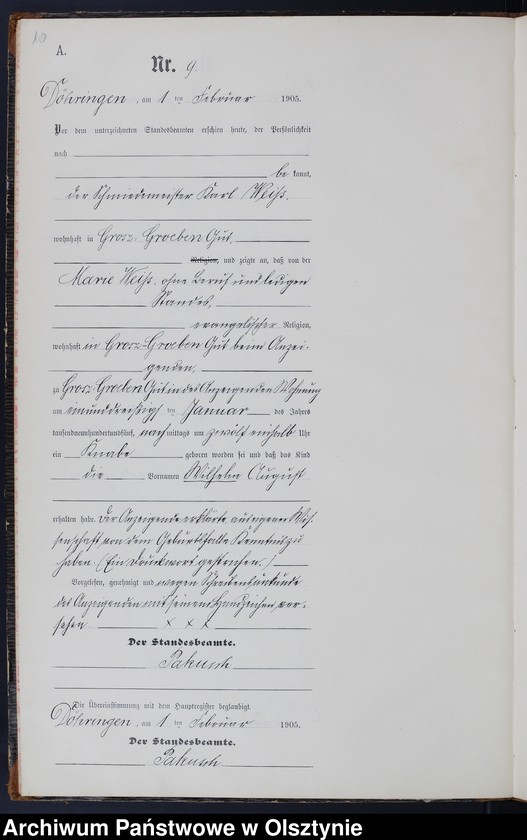 10
A.
Nr. 9.
Döhringen, am 1 ten Februar 1905.
Vor dem unterzeichneten Standesbeamten erschien heute, der Persönlichkeit
nach
be kannt,
der Schmiedemeister Karl Weiß,
wohnhaft in Grosz-Groeben Gut,
Religion, und zeigte an, daß von der
Marie Weiß, ohne Beruf und ledigen
Standes,
evangelischer Religion,
wohnhaft in Grosz-Groeben Gut beim Anzei-
genden,
zu Grosz-Groeben Gut in des Anzeigenden Wohnung
am einunddreißigsten Januar des Jahres
tausendneunhundertundfünf, nachmittags um zwölf einhalb Uhr
ein Knabe geboren worden sei und daß das Kind
die Vornamen Wilhelm August
erhalten habe. Der Anzeigende erklärte, aus eigener Wis-
senschaft von dem Geburtsfalle Kenntnis zu
haben. (Ein Druckwort gestrichen.)
Vorgelesen, genehmigt und wegen Schreibensunkunde
des Anzeigenden mit seinem Handzeichen ver-
sehen x x x
Der Standesbeamte.
Pakusch
Die Übereinstimmung mit dem Hauptregister beglaubigt.
Döhringen, am 1 ten Februar 1905.
Der Standesbeamte.
Pakusch
Archiwum Państwowe w Olsztynie